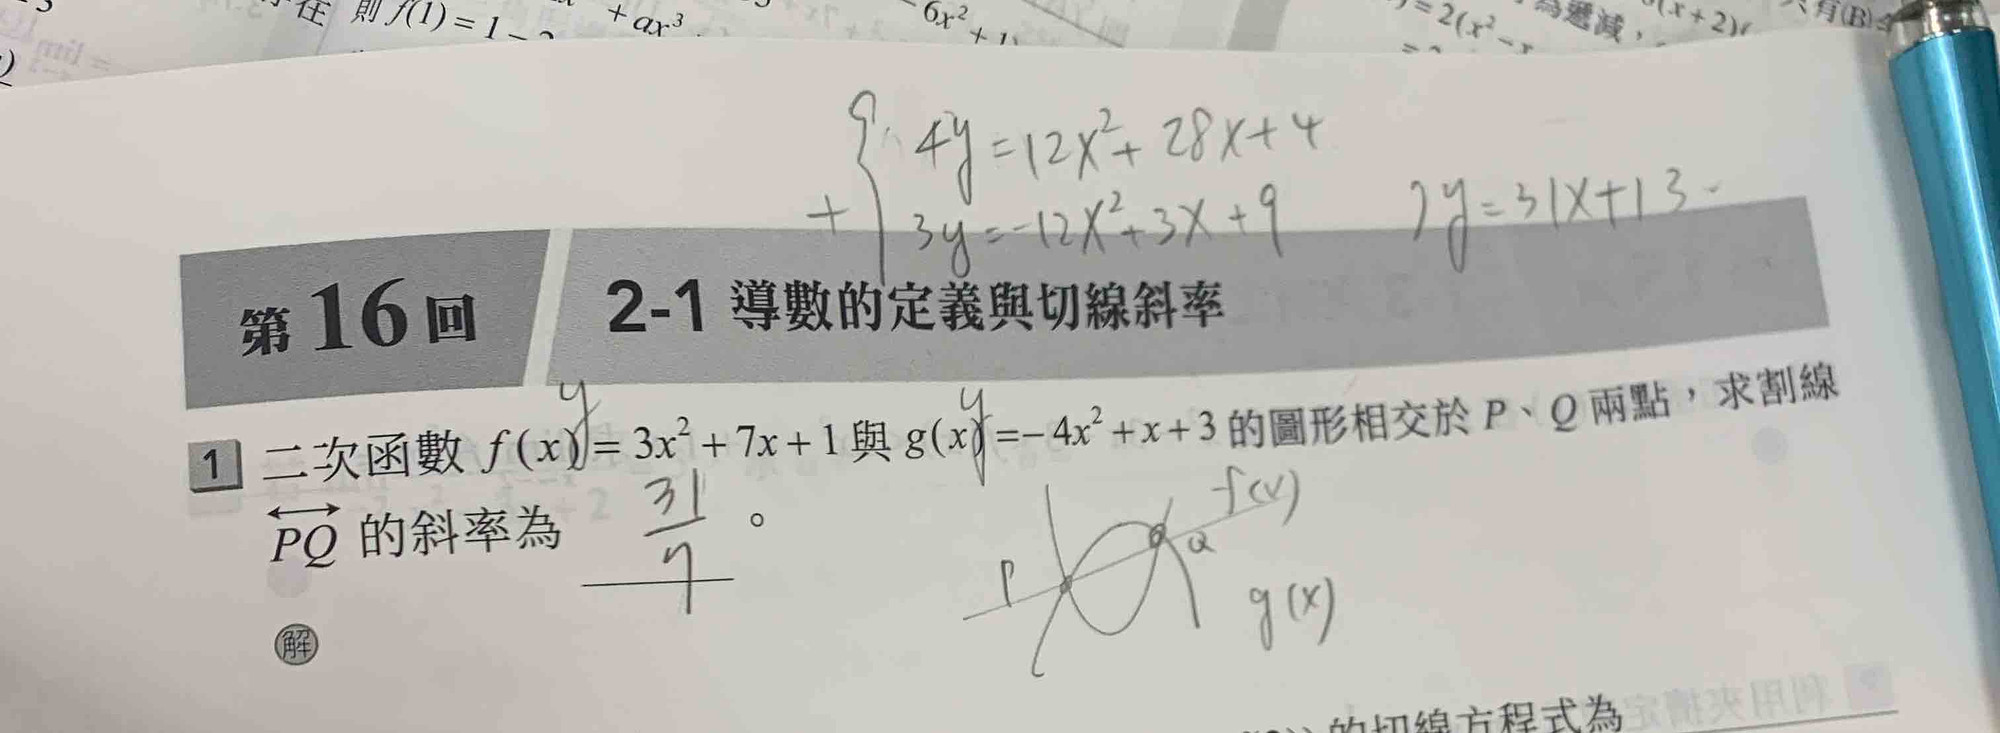 在 則 f(1) = 1 –
+ ax³
6x² + 1
= 2(x² – x
為遞減，
(x + 2)(
只有(B)
= lim
4y = 12x² + 28x + 4
+ { 3y = -12x² + 3x + 9
7y = 31x + 13
第 16 回 2-1 導數的定義與切線斜率
y y
1 二次函數 f(x) = 3x² + 7x + 1 與 g(x) = – 4x² + x + 3 的圖形相交於 P、Q 兩點，求割線
PQ 的斜率為 31/7 。
f(x)
P Q
g(x)
解
的切線方程式為